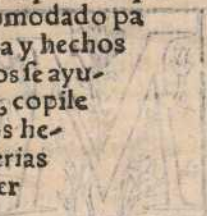 umodado pa
a y hechos
os ſe ayu-
, copile
s he-
erias
er